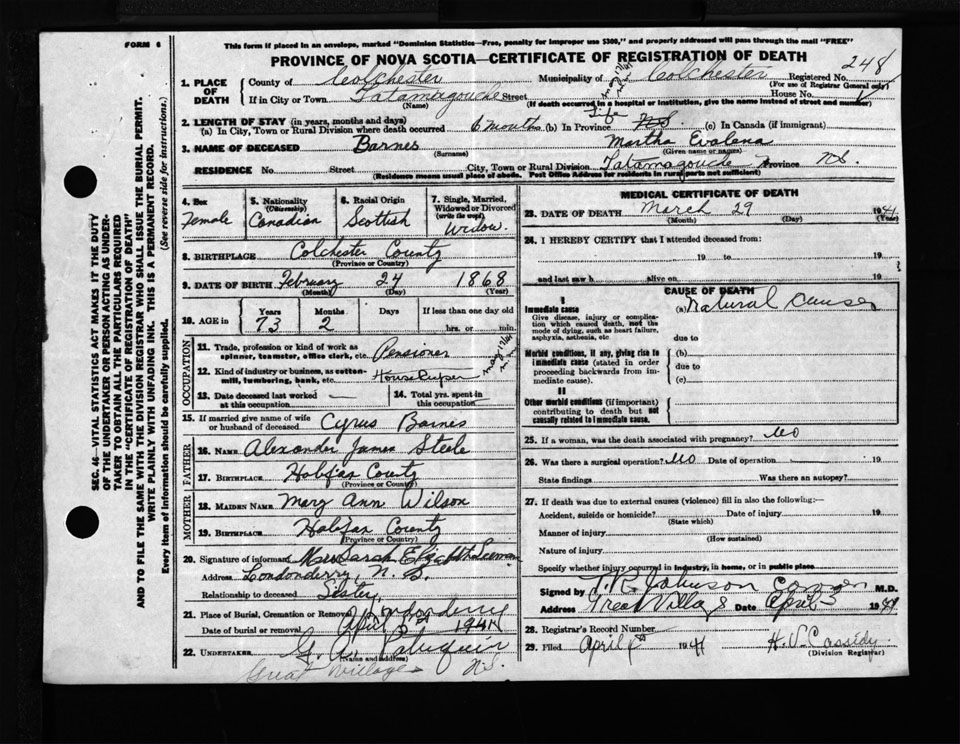 FORM 6
This form if placed in an envelope, marked "Dominion Statistics—Free, penalty for improper use $300," and properly addressed will pass through the mail "FREE"
PROVINCE OF NOVA SCOTIA—CERTIFICATE OF REGISTRATION OF DEATH
248
1. PLACE OF DEATH
County of Colchester Municipality of Colchester Registered No.
(For use of Registrar General only)
If in City or Town Tatamagouche Street House No.
(Name) (If death occurred in a hospital or institution, give the name instead of street and number)
2. LENGTH OF STAY (in years, months and days)
(a) In City, Town or Rural Division where death occurred 6 months (b) In Province Life NS (c) In Canada (if immigrant)
3. NAME OF DECEASED Barnes Martha Evalena
(Surname) (Given name or names)
RESIDENCE No. Street City, Town or Rural Division Tatamagouche Province N.S.
(Residence means usual place of abode. Post Office Address for residents in rural parts not sufficient)
4. Sex Female
5. Nationality (Citizenship) Canadian
6. Racial Origin Scottish
7. Single, Married, Widowed or Divorced (write the word) Widow.
8. BIRTHPLACE Colchester County
(Province or Country)
9. DATE OF BIRTH February 24 1868
(Month) (Day) (Year)
10. AGE in Years Months Days If less than one day old
73 2 hrs. or min.
OCCUPATION
11. Trade, profession or kind of work as spinner, teamster, office clerk, etc. Pensioner
12. Kind of industry or business, as cotton-mill, lumbering, bank, etc. House Keeper
13. Date deceased last worked at this occupation
14. Total yrs. spent in this occupation
15. If married give name of wife or husband of deceased Cyrus Barnes
FATHER
16. NAME Alexander James Steele
17. BIRTHPLACE Halifax County
(Province or Country)
MOTHER
18. MAIDEN NAME Mary Ann Wilson
19. BIRTHPLACE Halifax County
(Province or Country)
20. Signature of informant Mrs Sarah Elizabeth
Address Londonderry, N. S.
Relationship to deceased Sister
21. Place of Burial, Cremation or Removal Londonderry
Date of burial or removal April 1941
22. UNDERTAKER G. A.
(Name and address)
Great Village N.S.
MEDICAL CERTIFICATE OF DEATH
23. DATE OF DEATH March 29 1941
(Month) (Day) (Year)
24. I HEREBY CERTIFY that I attended deceased from:
19 to 19
and last saw h alive on 19
CAUSE OF DEATH
I
Immediate cause (a) Natural Causes
Give disease, injury or complication which caused death, not the mode of dying, such as heart failure, asphyxia, asthenia, etc.
due to
Morbid conditions, if any, giving rise to immediate cause (stated in order proceeding backwards from immediate cause).
(b)
due to
(c)
II
Other morbid conditions (if important) contributing to death but not causally related to immediate cause.
25. If a woman, was the death associated with pregnancy? No
26. Was there a surgical operation? No Date of operation 19
State findings Was there an autopsy?
27. If death was due to external causes (violence) fill in also the following:—
Accident, suicide or homicide? Date of injury 19
(State which)
Manner of injury
(How sustained)
Nature of injury
Specify whether injury occurred in industry, in home, or in public place
Signed by T. R. Johnson Coroner M.D.
Address Great Village Date April 3 1941
28. Registrar's Record Number
29. Filed April 1941 H. V. Cassidy
(Division Registrar)
SEC. 46—VITAL STATISTICS ACT MAKES IT THE DUTY
OF THE UNDERTAKER OR PERSON ACTING AS UNDERTAKER TO OBTAIN ALL THE PARTICULARS REQUIRED
IN THE "CERTIFICATE OF REGISTRATION OF DEATH"
AND TO FILE THE SAME WITH THE DIVISION REGISTRAR WHO SHALL ISSUE THE BURIAL PERMIT.
WRITE PLAINLY WITH UNFADING INK. THIS IS A PERMANENT RECORD.
Every item of information should be carefully supplied. (See reverse side for instructions.)